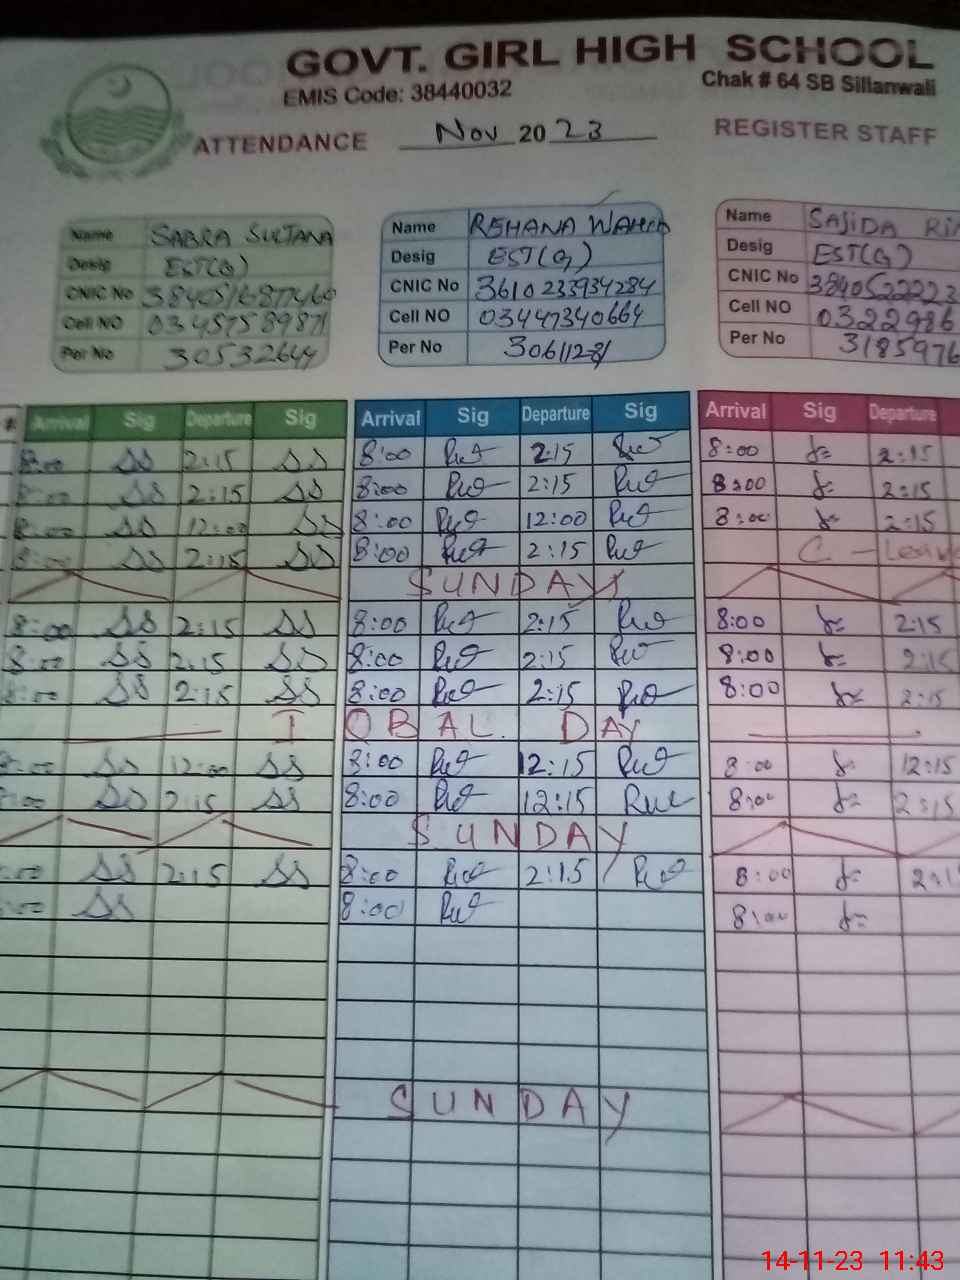 GOVT. GIRL HIGH SCHOOL
EMIS Code: 38440032 Chak # 64 SB Sillanwali
ATTENDANCE Nov 2023 REGISTER STAFF
Name SABRA SULTANA Name REHANA WAHEED Name SAJIDA
Desig EST(G) Desig EST(G) Desig EST(G)
CNIC No CNIC No 3610233934284 CNIC No 3840522223
Cell NO 03457589871 Cell NO 03447340664 Cell NO 0322986
Per No 30532644 Per No Per No 3185976
Arrival Sig Departure Sig Arrival Sig Departure Sig Arrival Sig Departure
8:00 SS 2:15 SS 8:00 2:15 8:00 2:15
8:00 SS 2:15 SS 8:00 2:15 8:00 2:15
8:00 SS 12:00 SS 8:00 12:00 8:00 2:15
8:00 SS 2:15 SS 8:00 2:15 C - Leave
SUNDAY
8:00 SS 2:15 SS 8:00 2:15 8:00 2:15
8:00 SS 2:15 SS 8:00 2:15 8:00 2:15
8:00 SS 2:15 SS 8:00 2:15 8:00 2:15
IQBAL DAY
8:00 SS 12:00 SS 8:00 12:15 8:00 12:15
:00 SS 2:15 SS 8:00 12:15 8:00 2:15
SUNDAY
:00 SS 2:15 SS 8:00 2:15 8:00 2:1
:00 SS 8:00 8:00
SUNDAY
14-11-23 11:43